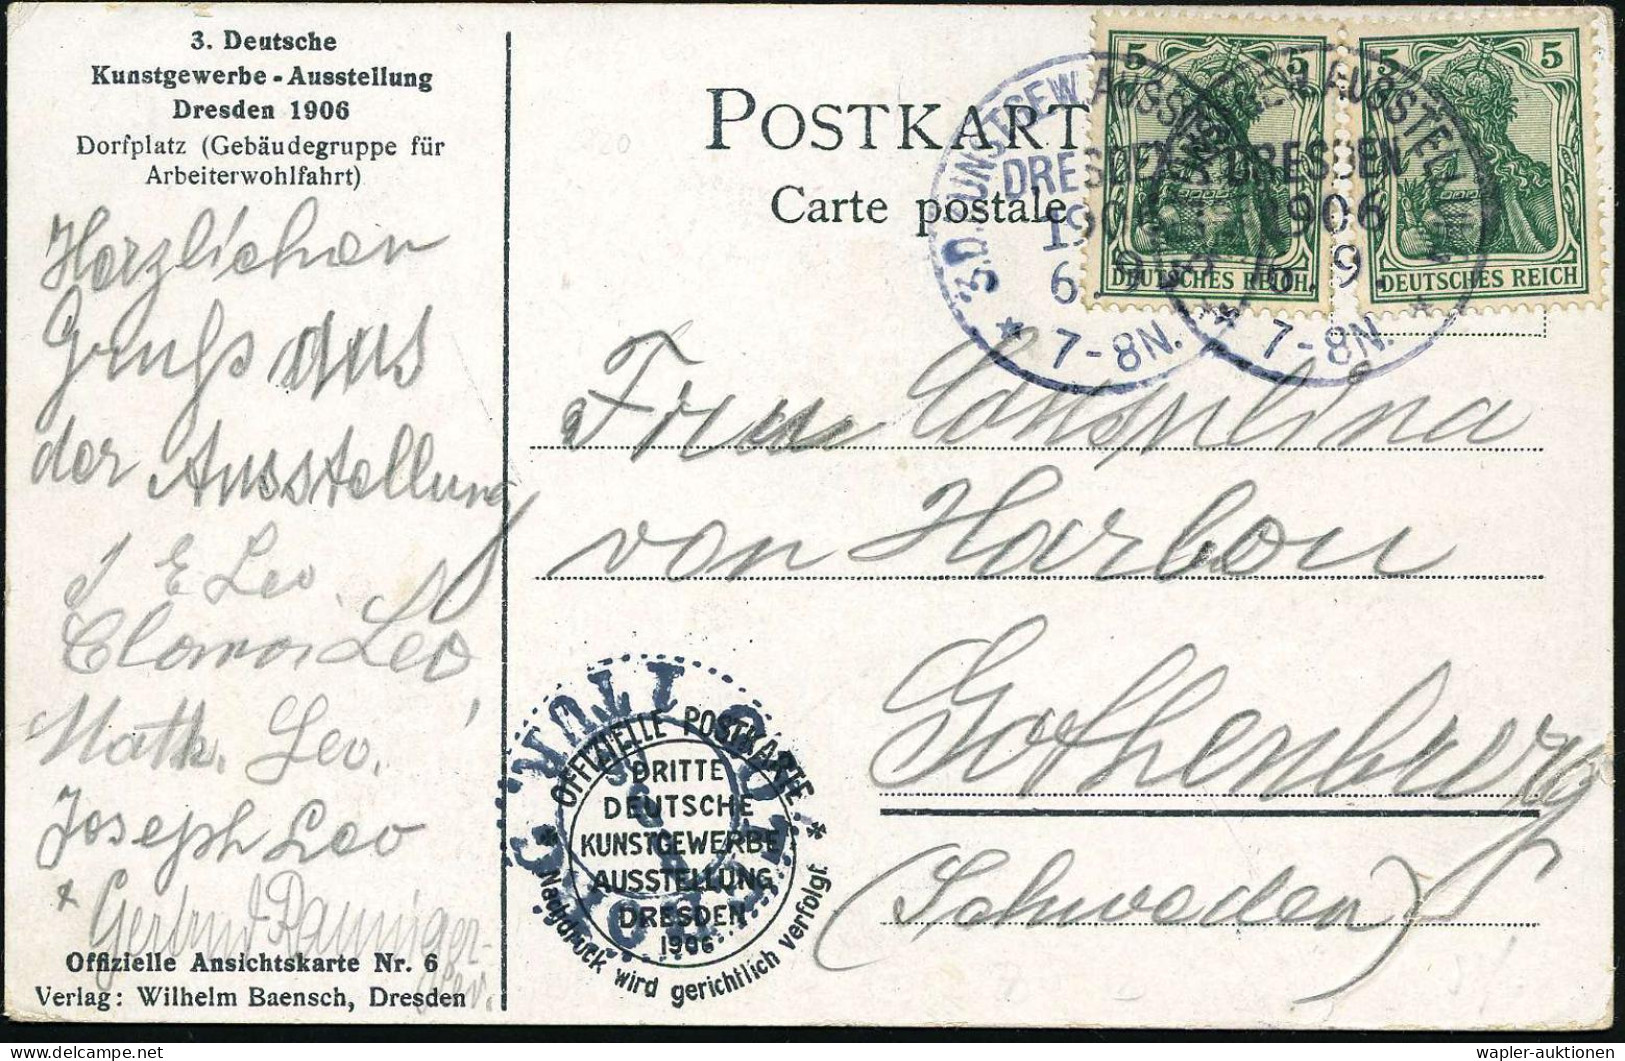 3. Deutsche
Kunstgewerbe - Ausstellung
Dresden 1906
Dorfplatz (Gebäudegruppe für
Arbeiterwohlfahrt)
Herzlichen
Gruß aus
der Ausstellung
E. Leo.
Clara Leo,
Math. Leo.
Joseph Leo
+ Gertrud
Offizielle Ansichtskarte Nr. 6
Verlag: Wilhelm Baensch, Dresden
POSTKART
Carte postale
5 5
DEUTSCHES REICH
5 5
DEUTSCHES REICH
3.D.KUNSTGEW.AUSSTELL
DRESDEN
1906
6.9.
* 7-8N.
AUSSTELL
DRESDEN
1906
6.9.
* 7-8N. *
Frau
von Harbou
Gothenburg
(Schweden)
* OFFIZIELLE POSTKARTE *
DRITTE
DEUTSCHE
KUNSTGEWERBE
AUSSTELLUNG
DRESDEN
1906
Nachdruck wird gerichtlich verfolgt
wapler-auktionen